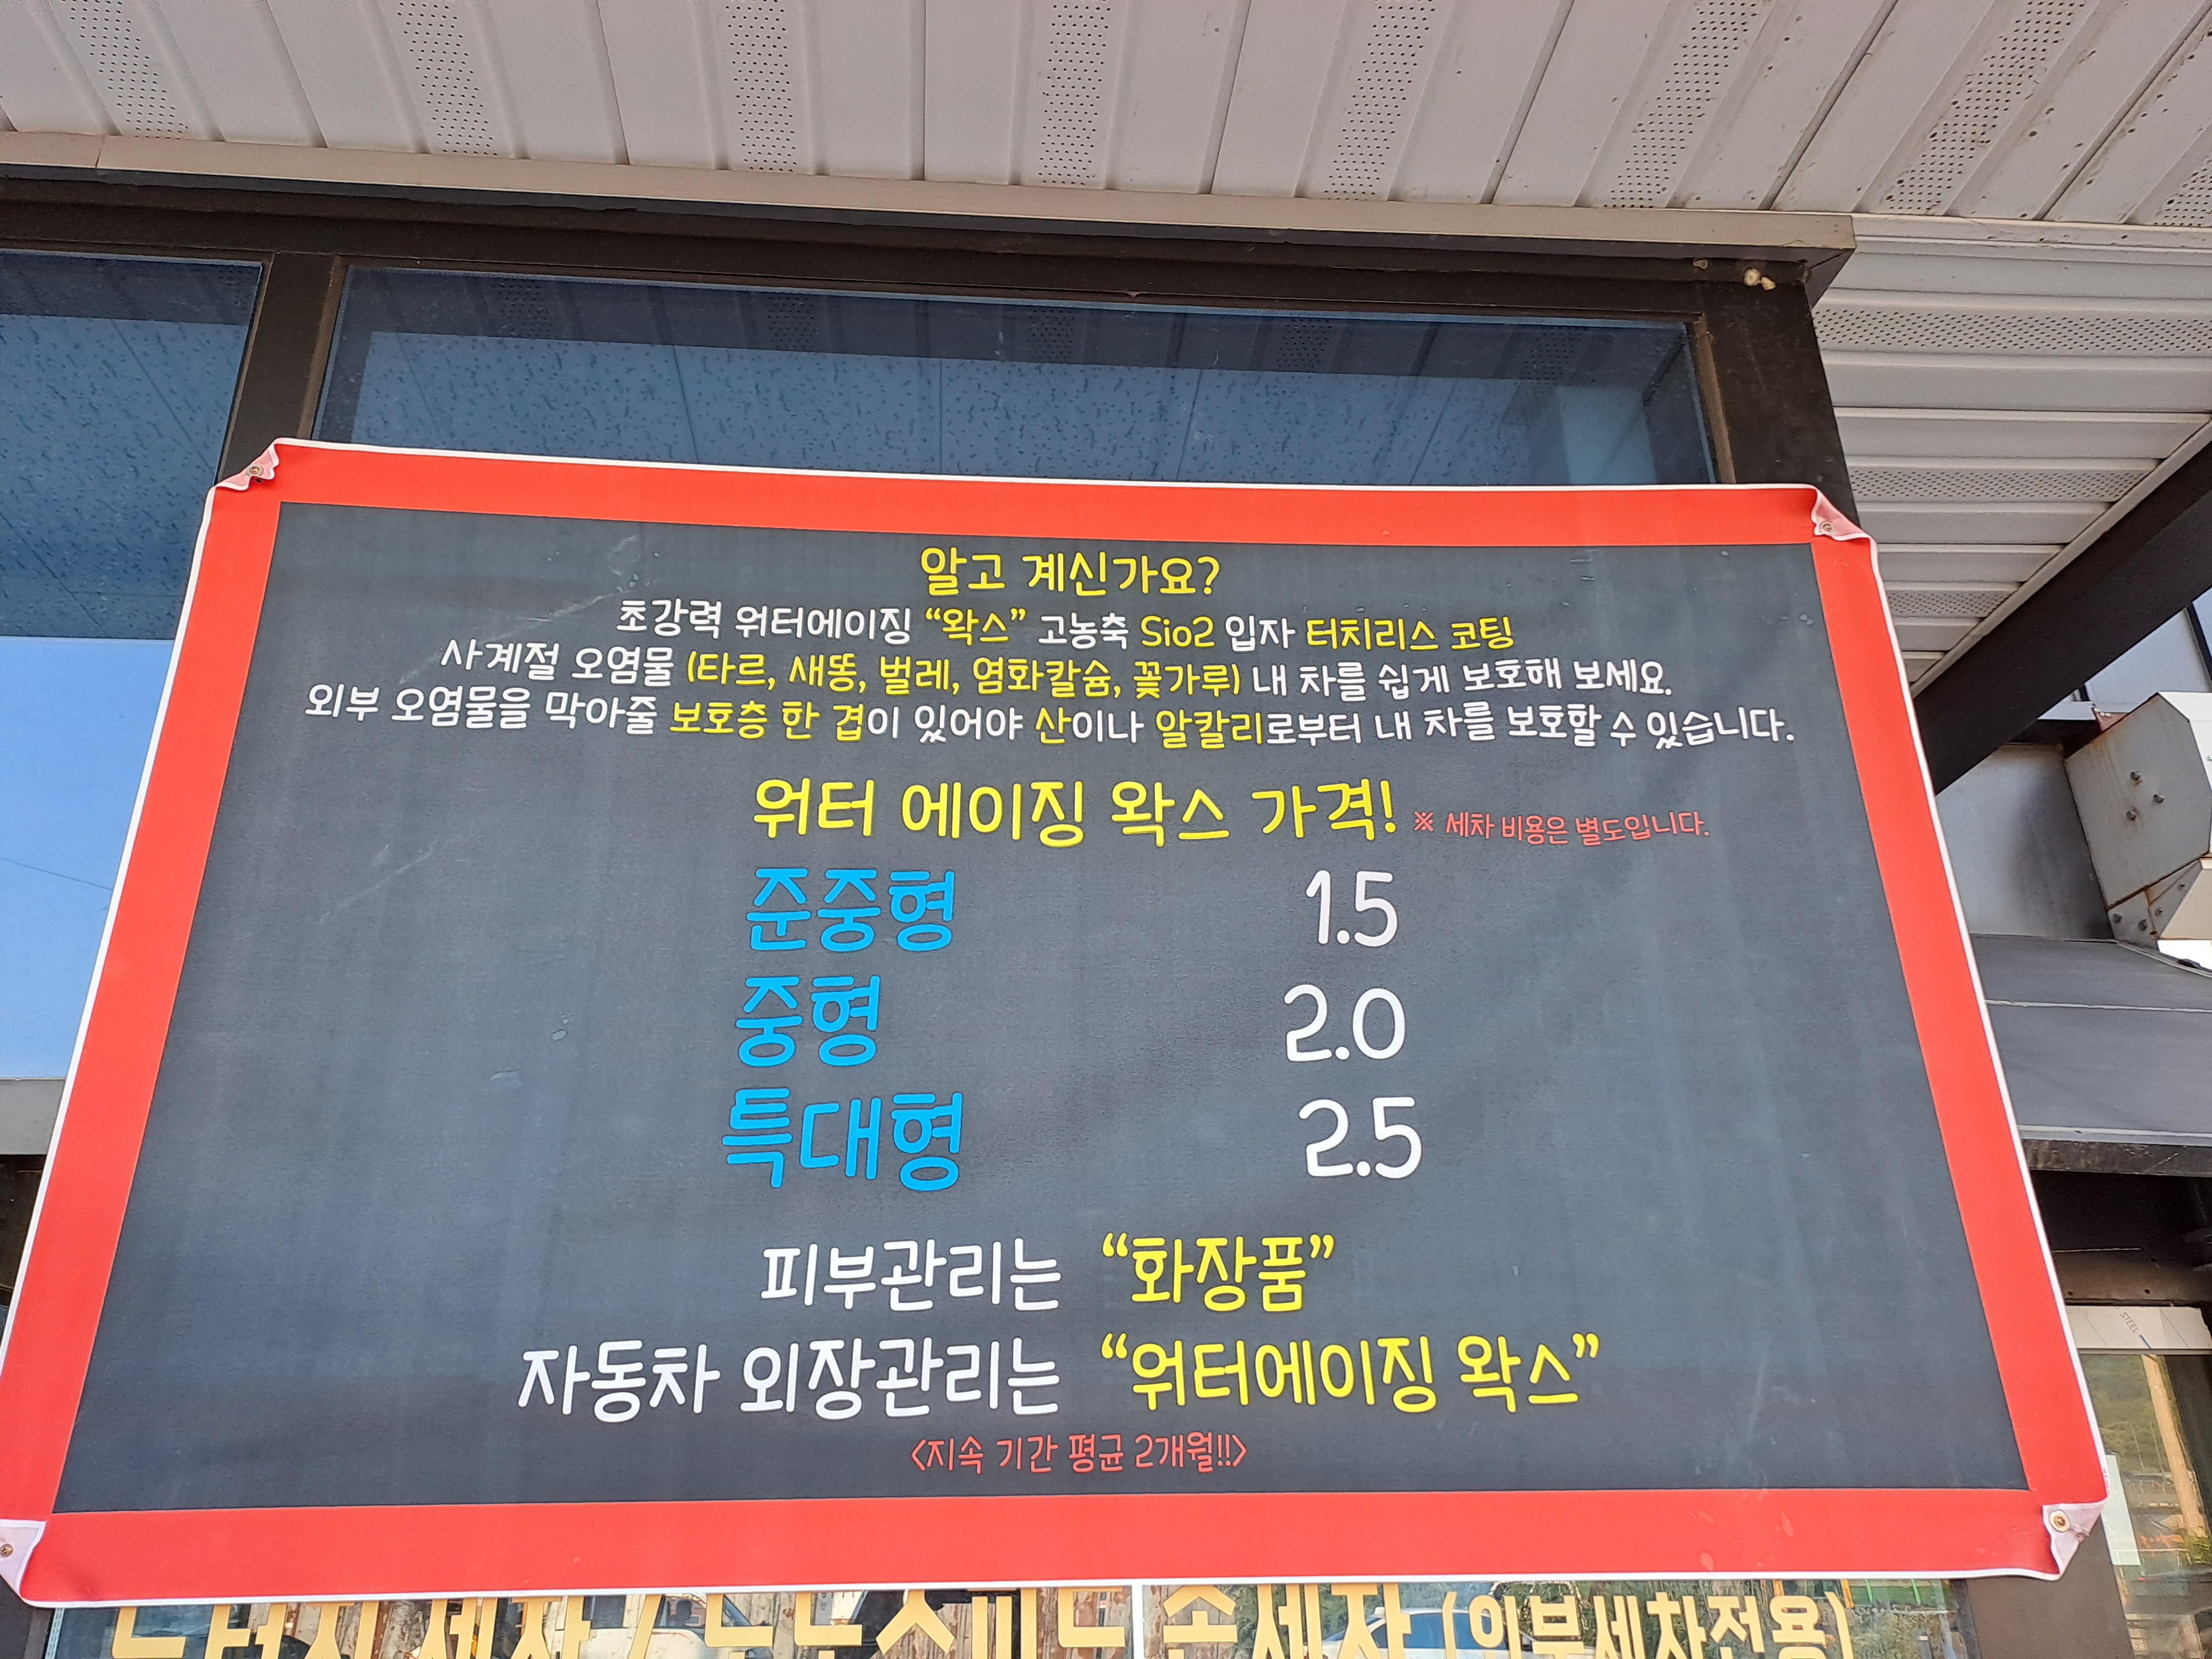 알고 계신가요?
초강력 워터에이징 “왁스” 고농축 Sio2 입자 터치리스 코팅
사계절 오염물 (타르, 새똥, 벌레, 염화칼슘, 꽃가루) 내 차를 쉽게 보호해 보세요.
외부 오염물을 막아줄 보호층 한 겹이 있어야 산이나 알칼리로부터 내 차를 보호할 수 있습니다.
워터 에이징 왁스 가격! ※ 세차 비용은 별도입니다.
준중형 1.5
중형 2.0
특대형 2.5
피부관리는 “화장품”
자동차 외장관리는 “워터에이징 왁스”
<지속 기간 평균 2개월!!>
손세차 (외부세차전용)
STEEL